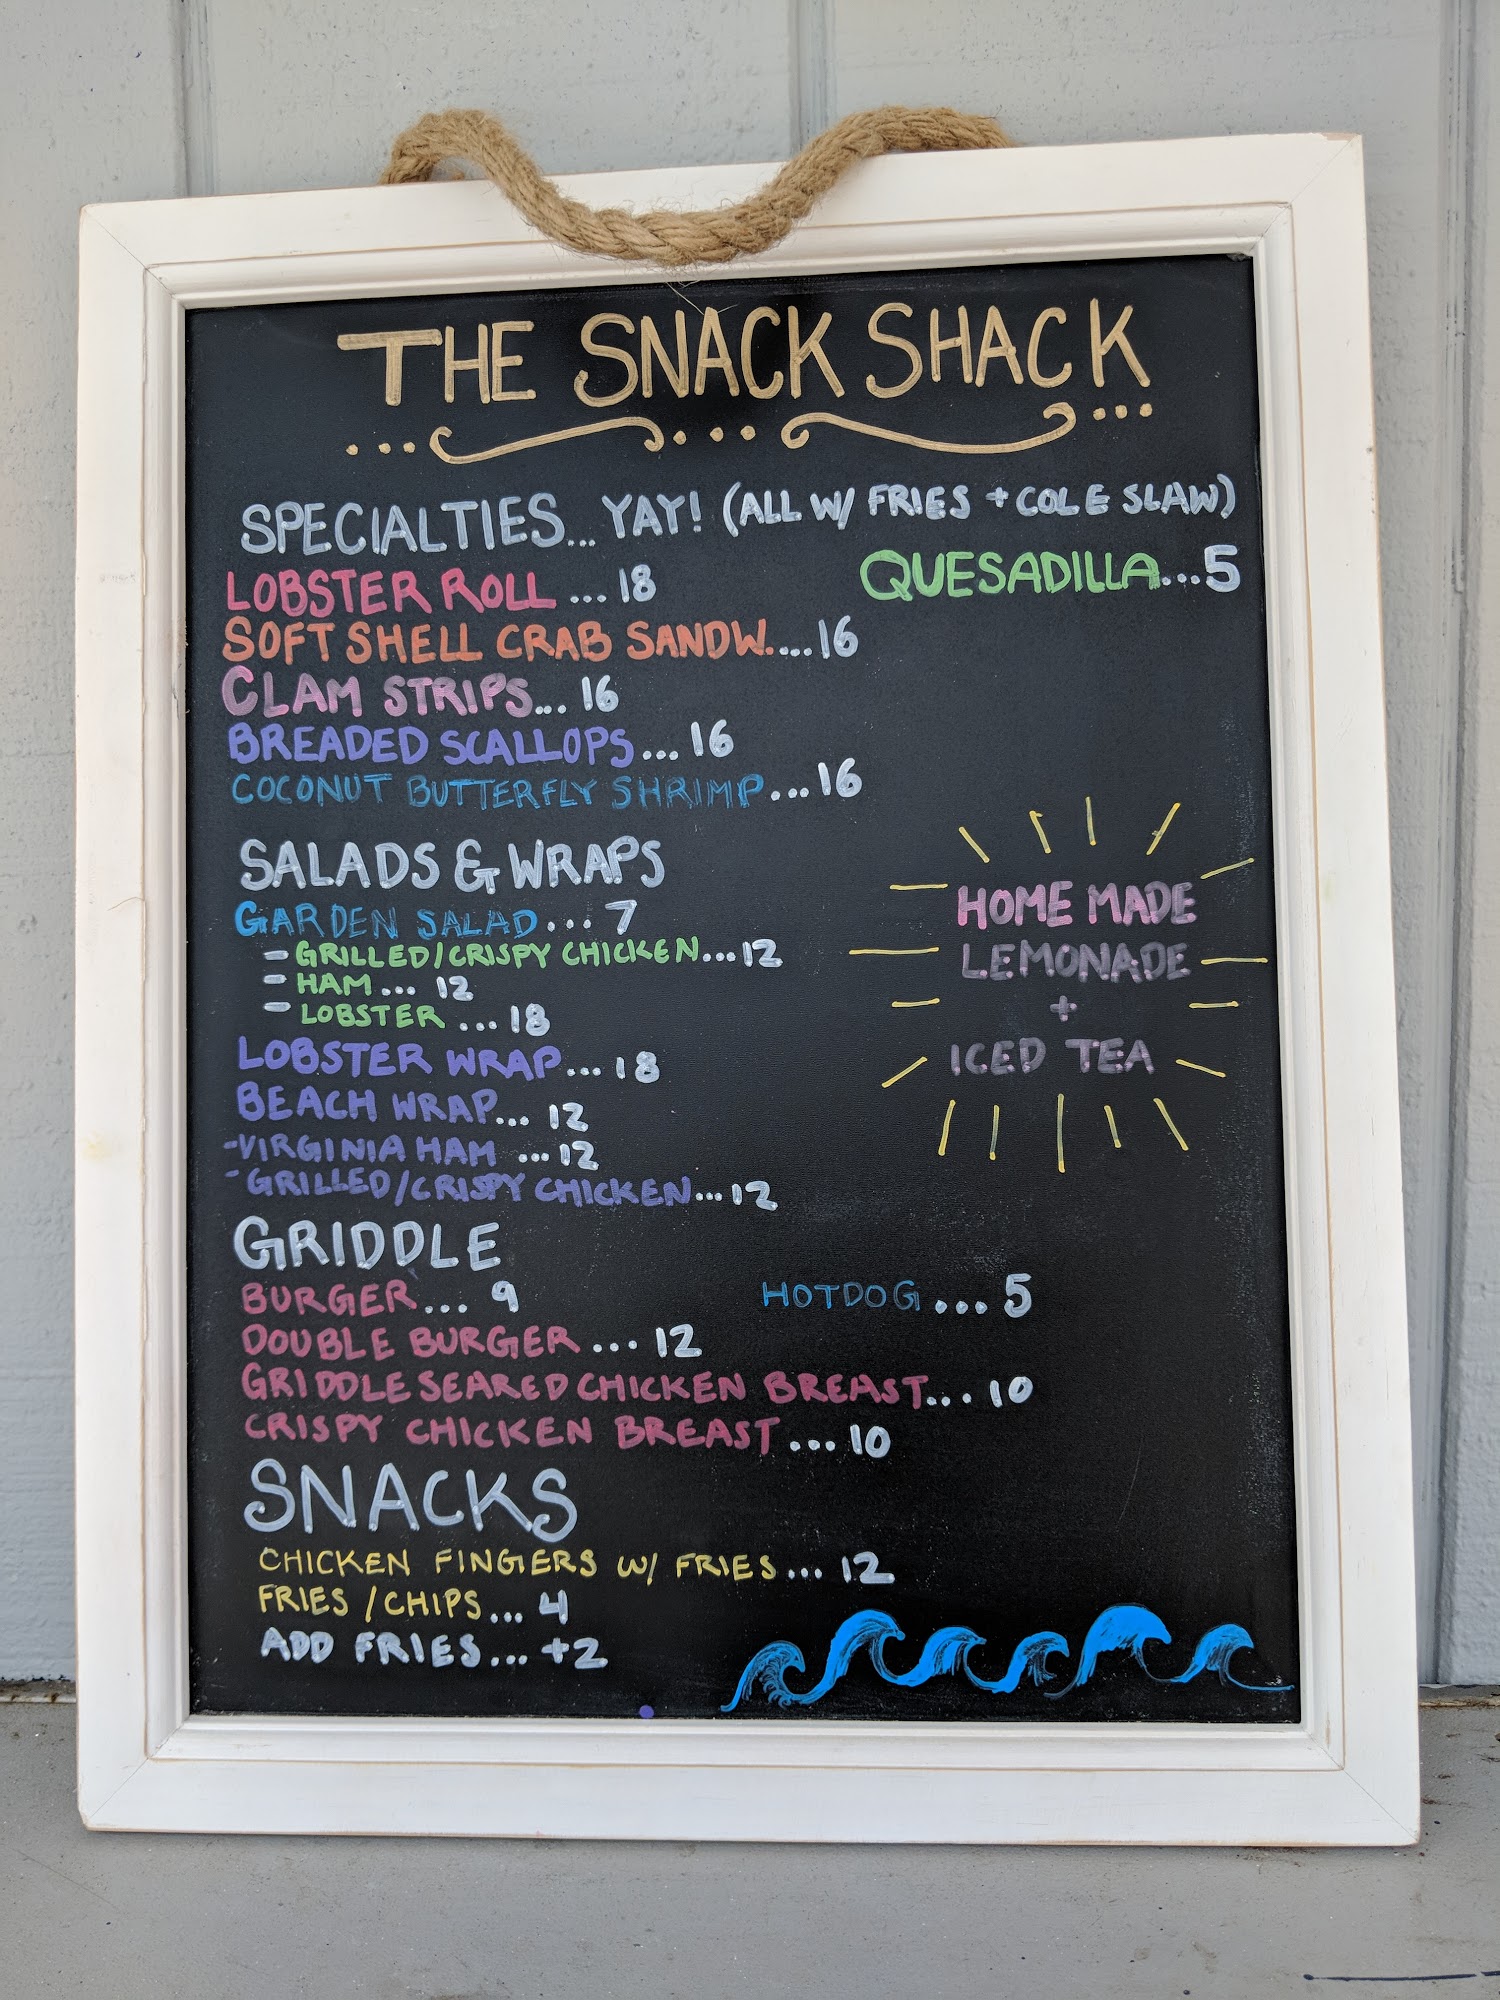 THE SNACK SHACK
SPECIALTIES... YAY! (ALL W/ FRIES + COLE SLAW)
LOBSTER ROLL ... 18
QUESADILLA...5
SOFT SHELL CRAB SANDW....16
CLAM STRIPS... 16
BREADED SCALLOPS ... 16
COCONUT BUTTERFLY SHRIMP...16
SALADS & WRAPS
GARDEN SALAD ... 7
- GRILLED/CRISPY CHICKEN...12
- HAM ... 12
- LOBSTER ... 18
LOBSTER WRAP... 18
BEACH WRAP... 12
-VIRGINIA HAM ...12
-GRILLED/CRISPY CHICKEN...12
HOME MADE
LEMONADE
+
ICED TEA
GRIDDLE
BURGER... 9
HOTDOG ... 5
DOUBLE BURGER ... 12
GRIDDLE SEARED CHICKEN BREAST... 10
CRISPY CHICKEN BREAST ... 10
SNACKS
CHICKEN FINGERS W/ FRIES ... 12
FRIES / CHIPS... 4
ADD FRIES... +2